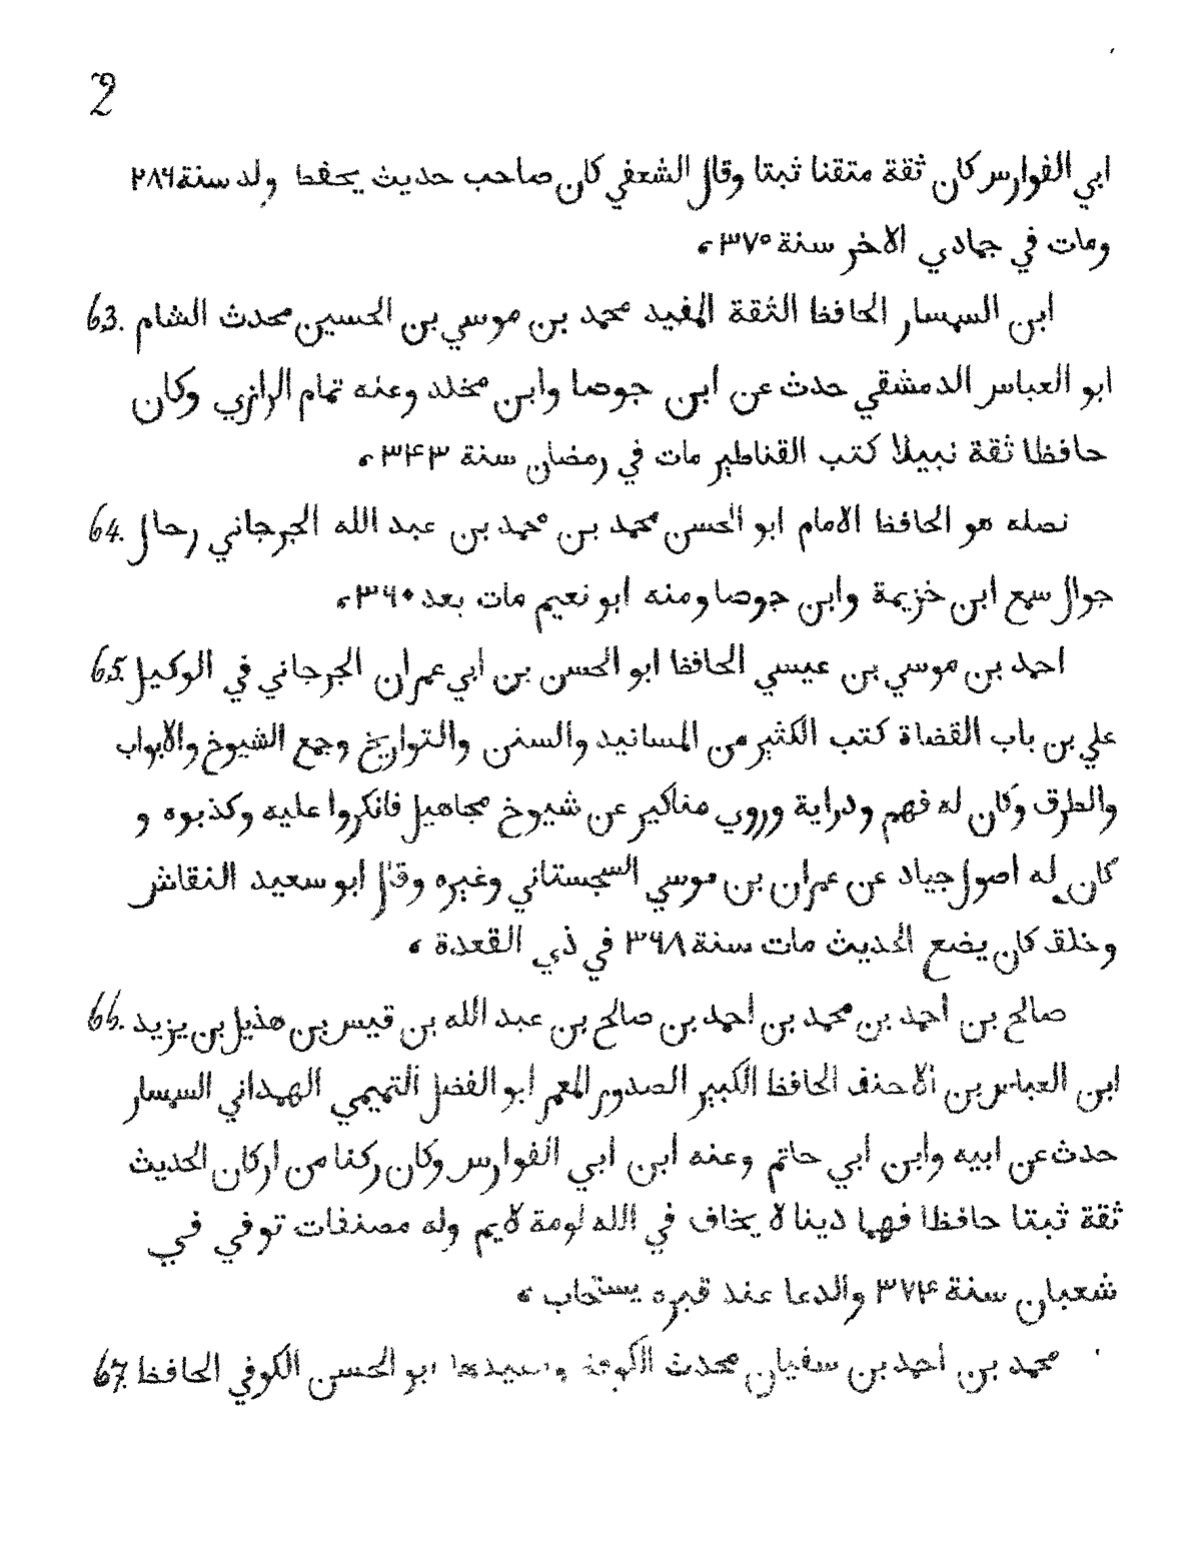 2
ابي الفوارس كان ثقة متقنا ثبتا وقال الشعفي كان صاحب حديث يحفظ ولد سنة ٢٨٦
ومات في جمادي الاخر سنة ٣٧٥
ابن السمسار الحافظ الثقة المفيد محمد بن موسي بن الحسين محدث الشام .63
ابو العباس الدمشقي حدث عن ابن جوصا وابن مخلد وعنه تمام الرازي وكان
حافظا ثقة نبيلا كتب القناطير مات في رمضان سنة ٣۴٣
نصله هو الحافظ الامام ابو الحسن محمد بن محمد بن عبد الله الجرجاني رحال .64
جوال سمع ابن خزيمة وابن جوصا ومنه ابو نعيم مات بعد ٣٦٠
احمد بن موسي بن عيسي الحافظ ابو الحسن بن ابي عمران الجرجاني في الوكيل .65
علي بن باب القضاة كتب الكثير من المسانيد والسنن والتواريخ وجمع الشيوخ والابواب
والطرق وكان له فهم ودراية وروي مناكير عن شيوخ مجاهيل فانكروا عليه وكذبوه و
كان له اصول جياد عن عمران بن موسي السجستاني وغيره وقال ابو سعيد النقاش
وخلق كان يضع الحديث مات سنة ٣٦٨ في ذي القعدة
صالح بن احمد بن محمد بن احمد بن صالح بن عبد الله بن قيس بن هذيل بن يزيد .66
ابن العباس بن الاحنف الحافظ الكبير الصدور المعمر ابو الفضل التميمي الهمداني السمسار
حدث عن ابيه وابن ابي حاتم وعنه ابن ابي الفوارس وكان ركنا من اركان الحديث
ثقة ثبتا حافظا فهما دينا لا يخاف في الله لومة لايم وله مصنفات توفي في
شعبان سنة ٣٧۴ والدعا عند قبره يستجاب
محمد بن احمد بن سفيان محدث الكوفة ابو الحسن الكوفي الحافظ .67